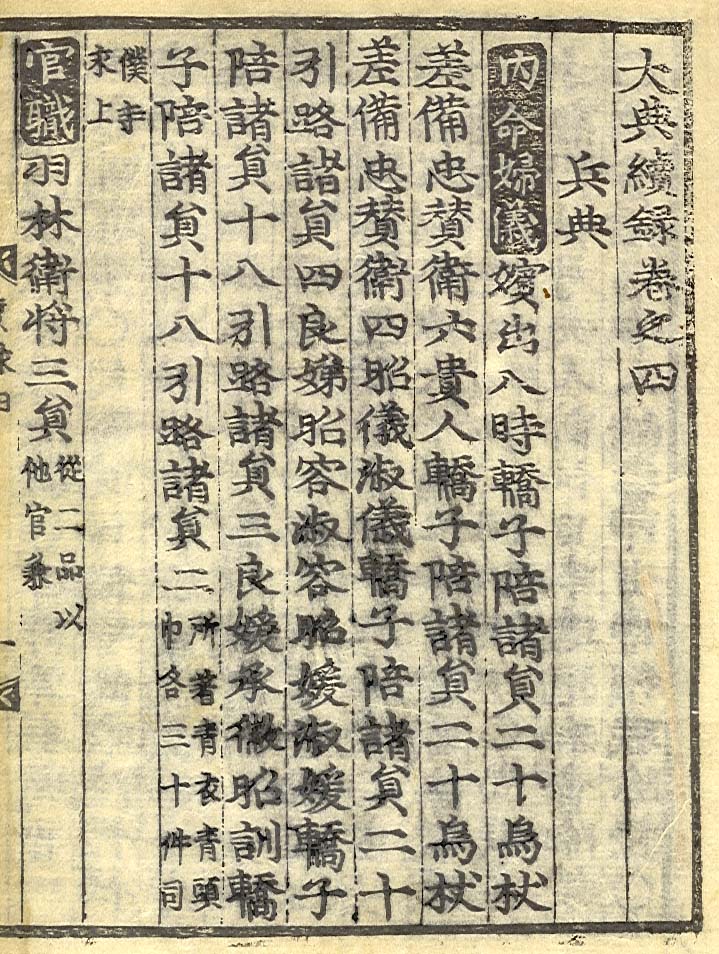 大典續錄卷之四
兵典
內命婦儀嬪出入時轎子陪諸負二十烏杖
差備忠贊衛六貴人轎子陪諸負二十烏杖
差備忠贊衛四昭儀淑儀轎子陪諸負二十
引路諸負四良娣昭容淑容昭媛淑媛轎子
陪諸負十八引路諸負三良媛承徽昭訓轎
子陪諸負十八引路諸負二所著靑衣靑頭
巾各三十件司
僕寺
求上
官職羽林衛將三負從二品以
他官兼